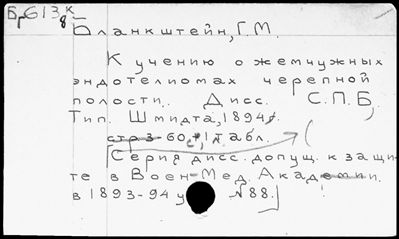 Бг613к
8
Бланкштейн, Г.М.
К учению о жемчужных
эндотелиомах черепной
полости. Дисс. С.П.Б,
Тип. Шмидта, 1894.
стр 3-60 с., 1 табл.
[Серия дисс. допущ. к защи-
те в Воен-Мед. Академии
в 1893-94 у N88.]